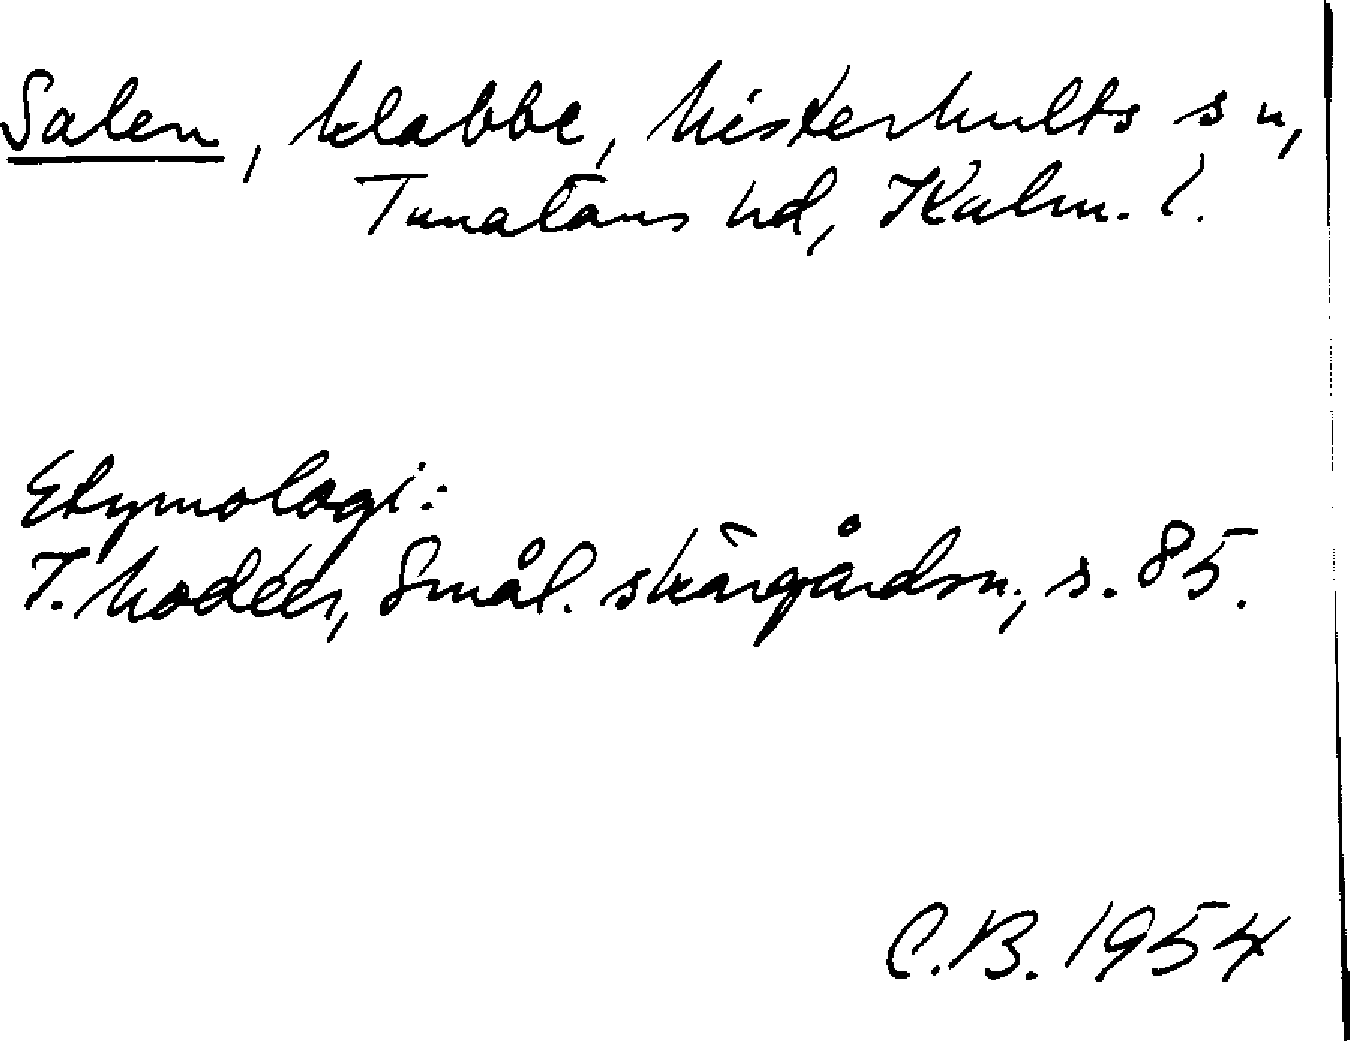 Salen, klabbe, Misterhults sn,
Tunaläns hd, Kalm. l.
Etymologi:
T. Modéer, Smål. skärgårdsn., s. 85.
C.B. 1954